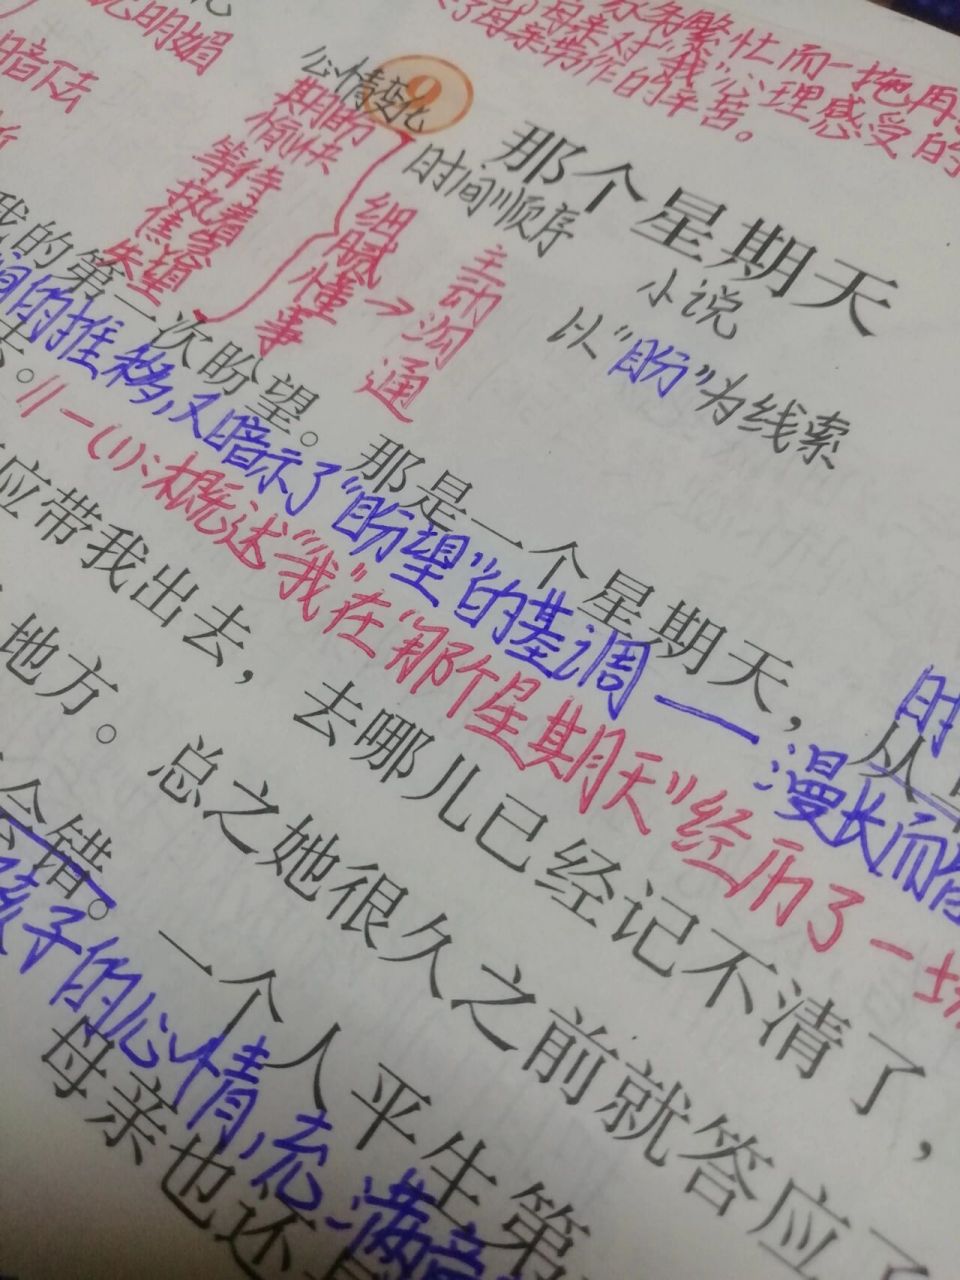 繁忙而一拖再
母亲对"我"心理感受的
了母亲劳作的辛苦。
明媚
暗下去
心情变化
9
期盼
愉快
等待
执着
焦急
失望
细腻
懂事
→
主动沟通
那个星期天
时间顺序
小说
以"盼"为线索
我的第一次盼望。那是一个星期天,从
间的推移,又暗示了"盼望"的基调——漫长而
时
一(1):概述"我"在"那个星期天"经历了一场
应带我出去,去哪儿已经记不清了,
地方。总之她很久之前就答应了
会错。一个人平生第
孩子的心情,充满
母亲也还